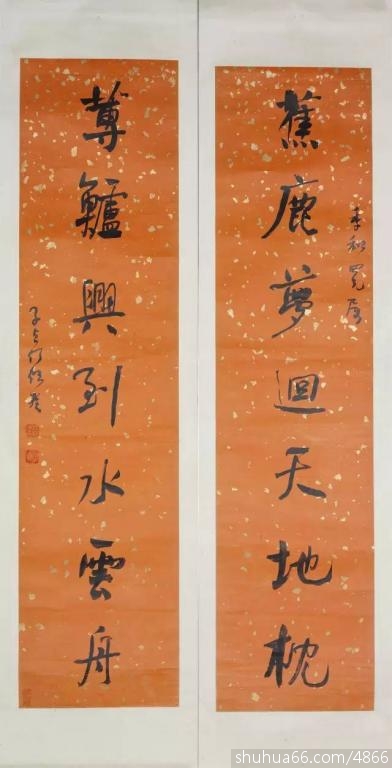 蕉鹿夢迴天地枕
蓴鱸興到水雲舟
子貞何紹基
shuhua66.com/4866